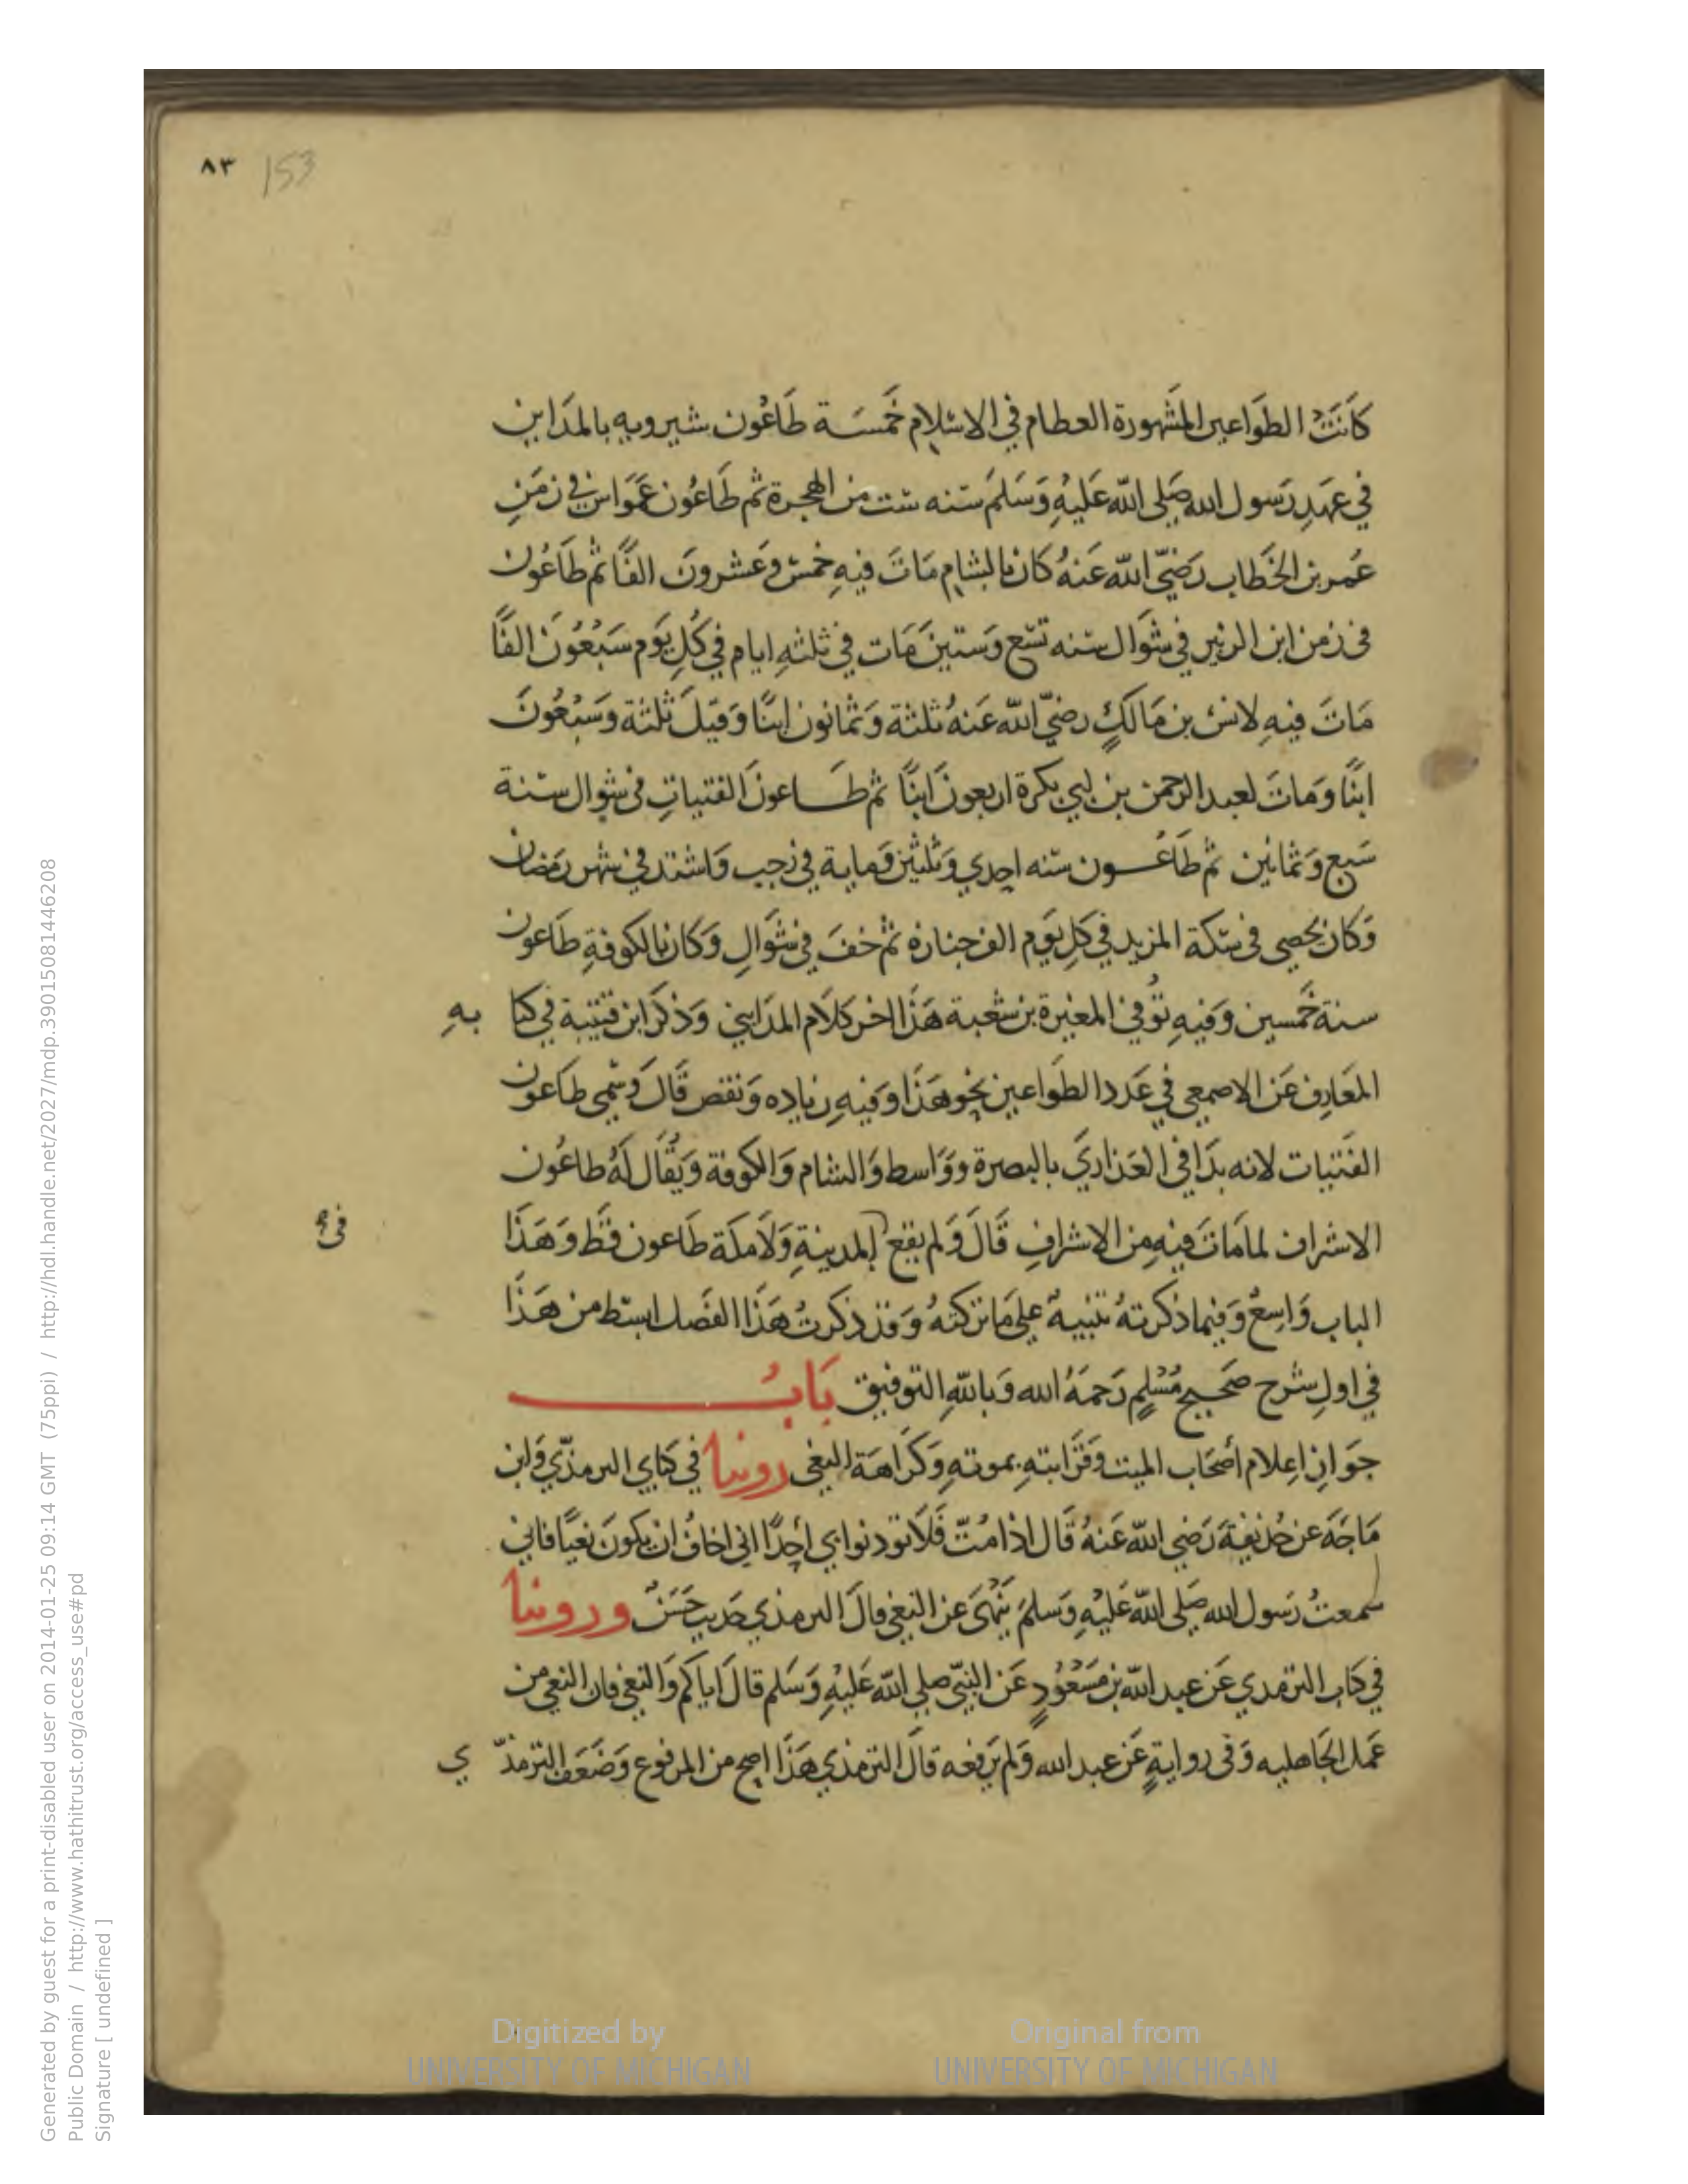 ٨٣ 153
كَانَتْ الطوَاعين المَشهورة العظام في الاسْلام خَمسَة طَاعُون شيرويه بالمدَاين
في عهَدِ رَسول الله صَلى الله عَليهِ وَسَلمَ سَنه ست من الهجرة ثم طَاعُون عَمَواس في زمَنِ
عُمر بن الخَطاب رَضيّ الله عَنهُ كَان بالشام مَاتَ فيهِ خمسٌ وَعشرونَ الفًا ثم طَاعُون
فى زمن ابن الزبير في شوَال سَنه تسْع وَستينَ مَات في ثلثهِ ايام في كُلِ يَوم سَبْعُونَ الفًا
مَاتَ فيهِ لانس بن مَالكٍ رضيّ الله عَنهُ ثلثة وَثمانون ابنًا وَقيلَ ثلثة وسَبْعُونَ
ابنًا وَمَاتَ لعبد الرحمن بن ابي بكرة اربعونَ ابنًا ثم طـاعونَ الفتياتِ في شوال سنة
سَبع وَثمانين ثم طَاعُـون سنه احدي وَثلثين وَماية في رجب وَاشتد في شهر رَمَضان
وَكان يحصى فى سكة المزيد في كلِ يَوم الف جنازه ثم خفَ في شوَالِ وَكان بالكوفةِ طَاعون
سنة خَمسين وَفيهِ تُوفي المغيرة بن شعبة هَذا اخر كلَام المدَايني وَذكَرَ ابن قتيبة في كتا بهِ
المعَارِف عَن الاصمعي في عَدد الطوَاعين نحو هَذا وَفيهِ زياده وَنقص قَالَ وَسُمي طَاعون
الفَتيات لانه بدَا في العَذاريَ بالبصرة ووَاسط وَالشام وَالكوفة وَيُقَال لهُ طاعُون
الاشراف لما مَاتَ فيهِ من الاشرافِ قَالَ وَلم يقع المدينةِ وَلَا مكَة طَاعون قَط وَهَذَا
في
الباب وَاسِعٌ وَفيما ذكرتهُ تنبيهٌ علي مَا تركتهُ وَقد ذكرتُ هَذَا الفَصل ابسَط من هَذَا
في اولِ شرح صَحيح مُسْلمٍ رَحمَهُ الله وَبالله التوفيق بَابُ
جوَازِ اعِلام أصَحَاب الميت وَقَرَابتهِ بموتهِ وَكرَاهَة النعي روينا في كتابي الترمذيّ وَابن
مَاجَهَ عن حُذيفةَ رَضي الله عَنهُ قَال اذا مُتّ فَلَا توذنوا بي أحِدًا اني اخافُ ان يكونَ نعيًا فاني
سمعتُ رَسول الله صَلى الله عَليهِ وَسَلمَ يَنْهَى عن النعي قالَ الترمذي حَديث حَسَنٌ وروينا
في كتَاب الترمذي عَن عبد الله بن مَسْعُودٍ عَن النبيّ صلي الله عَليهِ وَسَلم قالَ اياكم وَالنعي فان النعي من
عَمل الجَاهليه وَفى روايةٍ عَن عبد الله وَلم يَرفعه قالَ الترمذي هَذَا اصح من المرفوع وَضعَف الترمذّ ي
Digitized by
UNIVERSITY OF MICHIGAN
Original from
UNIVERSITY OF MICHIGAN
Generated by guest for a print-disabled user on 2014-01-25 09:14 GMT (75ppi) / http://hdl.handle.net/2027/mdp.39015081446208
Public Domain / http://www.hathitrust.org/access_use#pd
Signature [ undefined ]